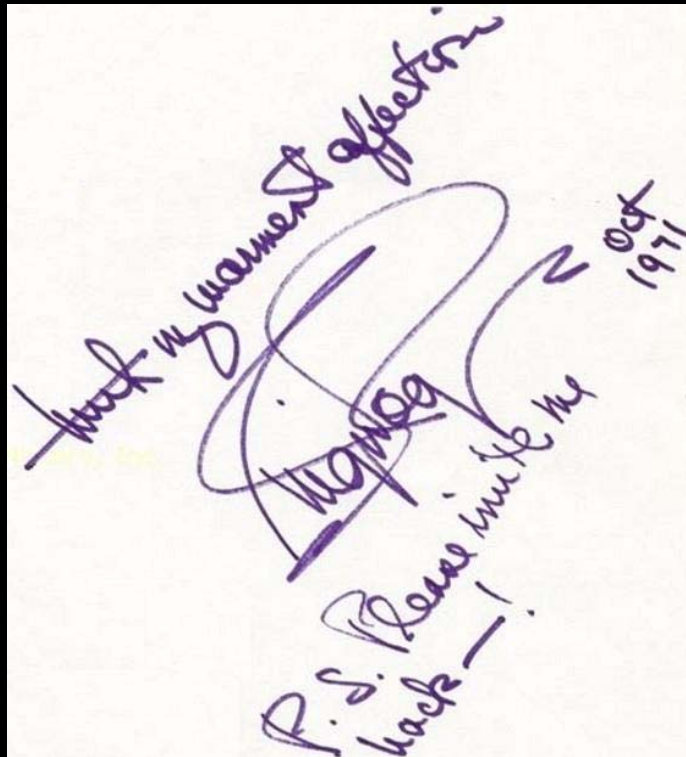 with my warmest affection
Oct
1971
P.S. Please invite me
back — !